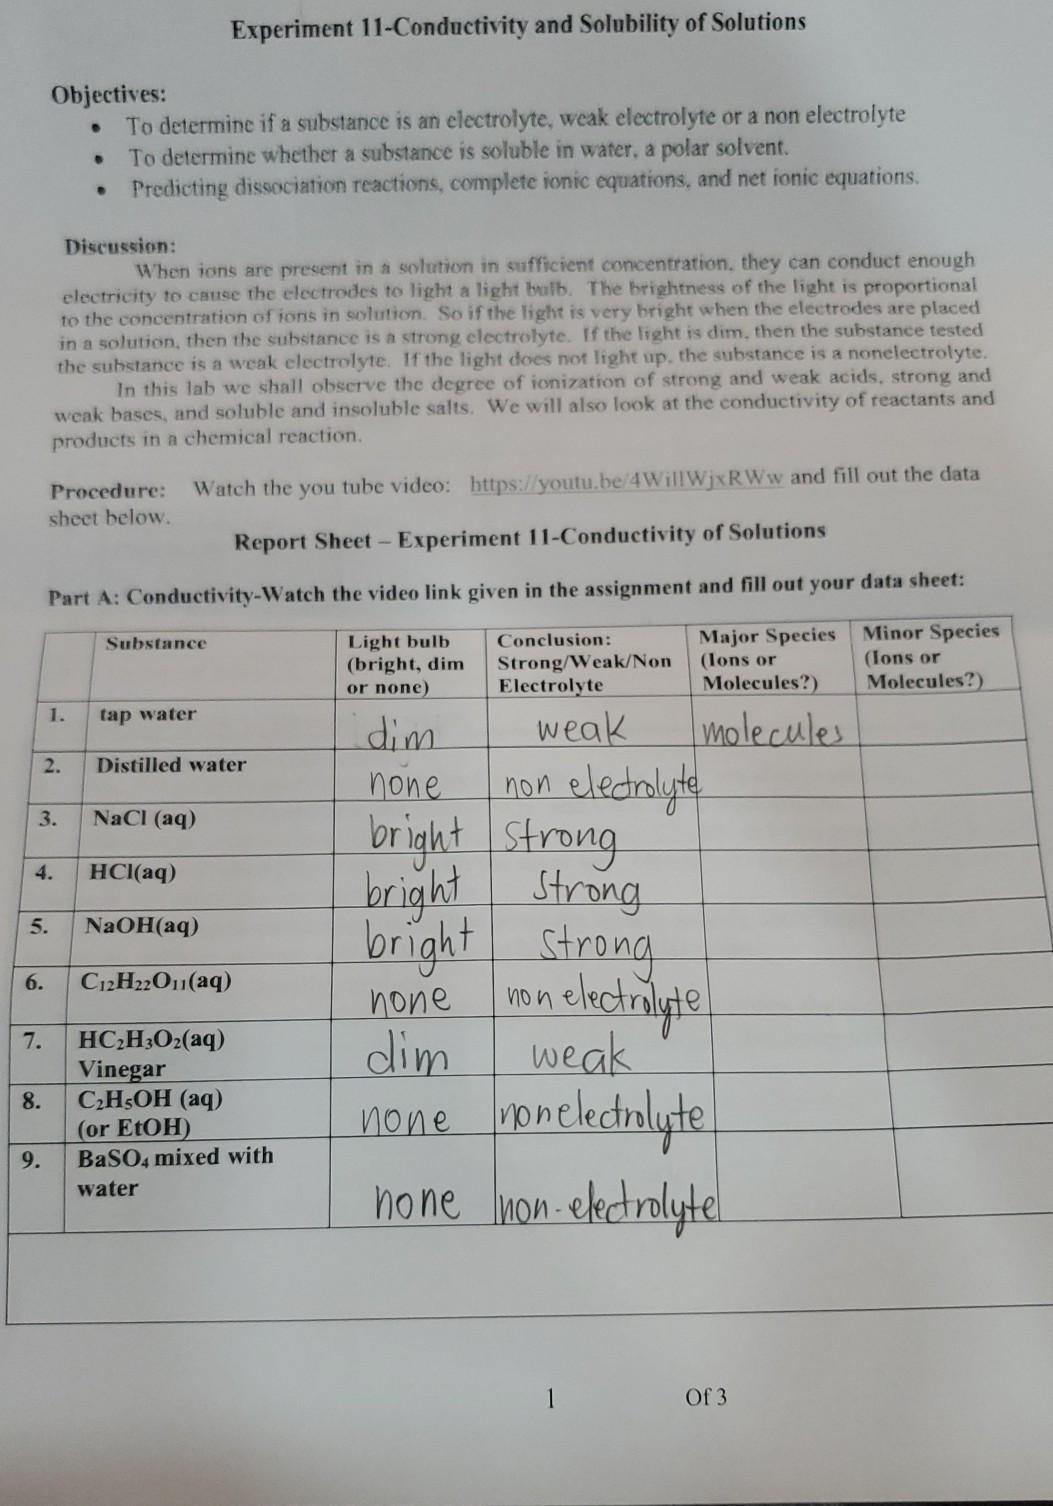 Experiment 11-Conductivity and Solubility of Solutions
Objectives:
• To determine if a substance is an electrolyte, weak electrolyte or a non electrolyte
• To determine whether a substance is soluble in water, a polar solvent.
• Predicting dissociation reactions, complete ionic equations, and net ionic equations.
Discussion:
When ions are present in a solution in sufficient concentration, they can conduct enough
electricity to cause the electrodes to light a light bulb. The brightness of the light is proportional
to the concentration of ions in solution. So if the light is very bright when the electrodes are placed
in a solution, then the substance is a strong electrolyte. If the light is dim, then the substance tested
the substance is a weak electrolyte. If the light does not light up, the substance is a nonelectrolyte.
In this lab we shall observe the degree of ionization of strong and weak acids, strong and
weak bases, and soluble and insoluble salts. We will also look at the conductivity of reactants and
products in a chemical reaction.
Procedure: Watch the you tube video: https://youtu.be/4WillWjxRWw and fill out the data
sheet below.
Report Sheet – Experiment 11-Conductivity of Solutions
Part A: Conductivity-Watch the video link given in the assignment and fill out your data sheet:
Substance Light bulb (bright, dim or none) Conclusion: Strong/Weak/Non Electrolyte Major Species (Ions or Molecules?) Minor Species (Ions or Molecules?)
1. tap water dim weak molecules
2. Distilled water none non electrolyte
3. NaCl (aq) bright strong
4. HCl(aq) bright strong
5. NaOH(aq) bright strong
6. C₁₂H₂₂O₁₁(aq) none non electrolyte
7. HC₂H₃O₂(aq) Vinegar dim weak
8. C₂H₅OH (aq) (or EtOH) none nonelectrolyte
9. BaSO₄ mixed with water none non-electrolyte
1 Of 3